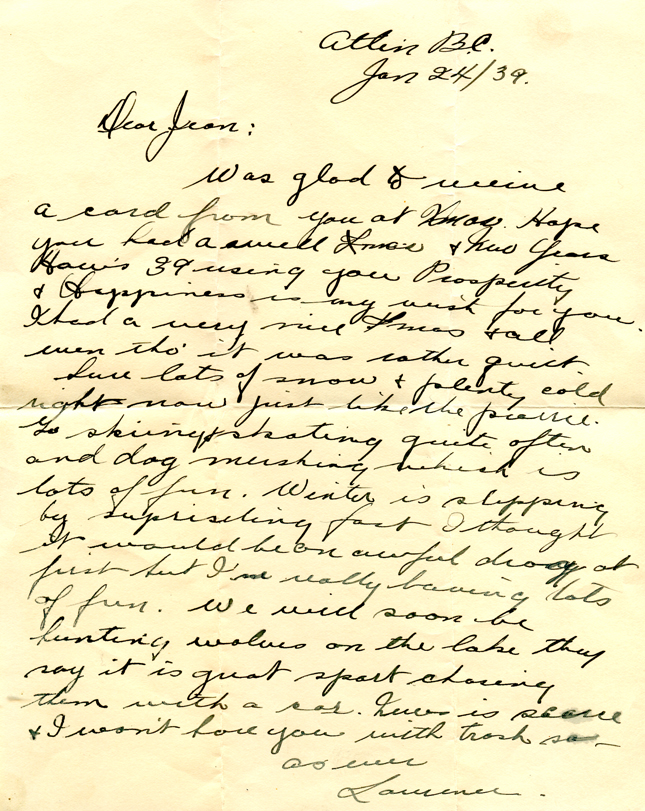 Atlin B.C.
Jan 24/39.
Dear Jean:
Was glad to receive
a card from you at Xmas. Hope
you had a swell Xmas & New Years
How's 39 using you Prosperity
& Happiness is my wish for you.
I had a very nice Xmas & all
even tho' it was rather quiet.
Sure lots of snow & plenty cold
right now just like the prairie.
Go skiing & skating quite often
and dog mushing which is
lots of fun. Winter is slipping
by suprisiling fast I thought
it would be an awful drag at
first but I'm really having lots
of fun. We will soon be
hunting wolves on the lake they
say it is great sport chasing
them with a car. News is scarce
& I won't bore you with trash so—
as ever
Lawrence.